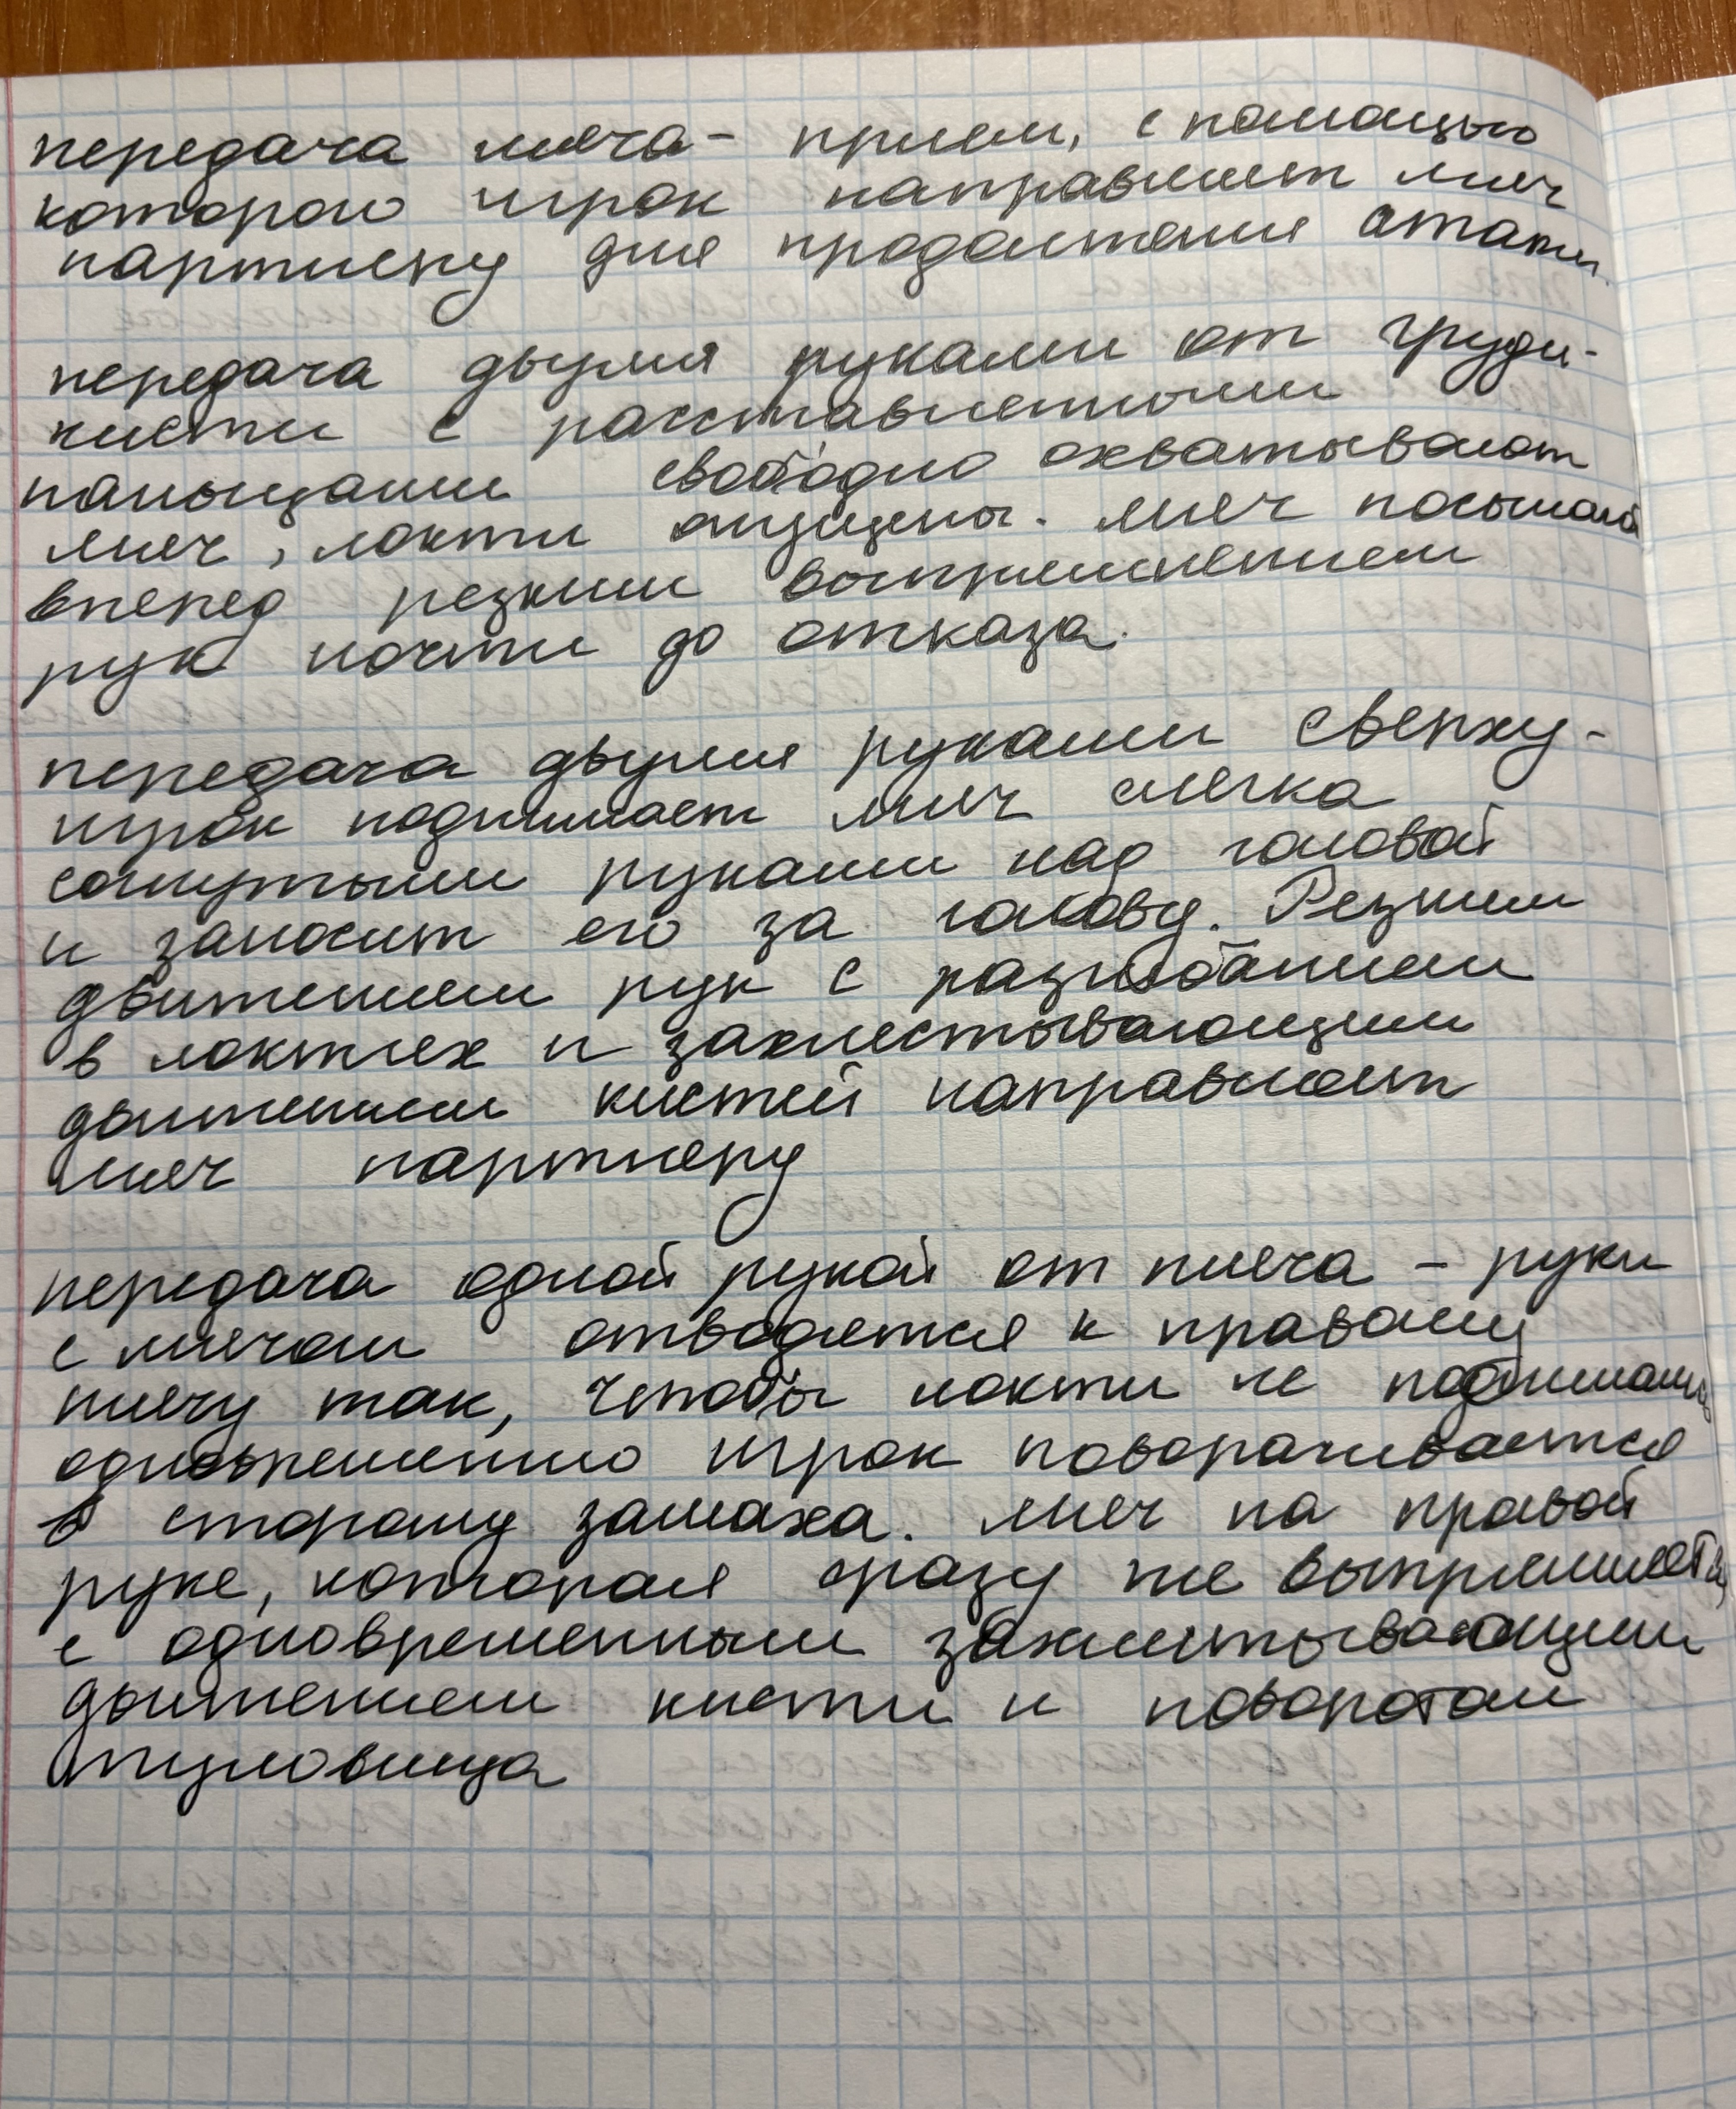 передача мяча - прием, с помощью
которого игрок направляет мяч
партнеру для продолжения атаки.
передача двумя руками от груди -
кисти с расставленными
пальцами свободно охватывают
мяч, локти опущены. мяч посылают
вперед резким выпрямлением
рук почти до отказа.
передача двумя руками сверху -
игрок поднимает мяч слегка
согнутыми руками над головой
и заносит его за голову. Резким
движением рук с разгибанием
в локтях и захлестывающим
движением кистей направляет
мяч партнеру
передача одной рукой от плеча - руки
с мячом отводятся к правому
плечу так, чтобы локти не поднимались
одновременно игрок поворачивается
в сторону замаха. мяч на правой
руке, которая сразу же выпрямляется
с одновременным захлестывающим
движением кисти и поворотом
туловища